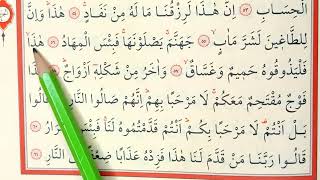 الْحِسَابِ ﴿٥٣﴾ اِنَّ هٰذَا لَرِزْقُنَا مَا لَهُ مِنْ نَفَادٍ ﴿٥٤﴾ هٰذَا وَاِنَّ
لِلطَّاغ۪ينَ لَشَرَّ مَاٰبٍ ﴿٥٥﴾ جَهَنَّمَ يَصْلَوْنَهَا فَبِئْسَ الْمِهَادُ ﴿٥٦﴾ هٰذَا
فَلْيَذُوقُوهُ حَم۪يمٌ وَغَسَّاقٌ ﴿٥٧﴾ وَاٰخَرُ مِنْ شَكْلِه۪ٓ اَزْوَاجٌ ﴿٥٨﴾ هٰذَا
فَوْجٌ مُقْتَحِمٌ مَعَكُمْ لَا مَرْحَبًا بِهِمْ اِنَّهُمْ صَالُوا النَّارِ ﴿٥٩﴾
بَلْ اَنْتُمْ لَا مَرْحَبًا بِكُمْ اَنْتُمْ قَدَّمْتُمُوهُ لَنَا فَبِئْسَ الْقَرَارُ ﴿٦٠﴾
قَالُوا رَبَّنَا مَنْ قَدَّمَ لَنَا هٰذَا فَزِدْهُ عَذَابًا ضِعْفًا فِي النَّارِ ﴿٦١﴾